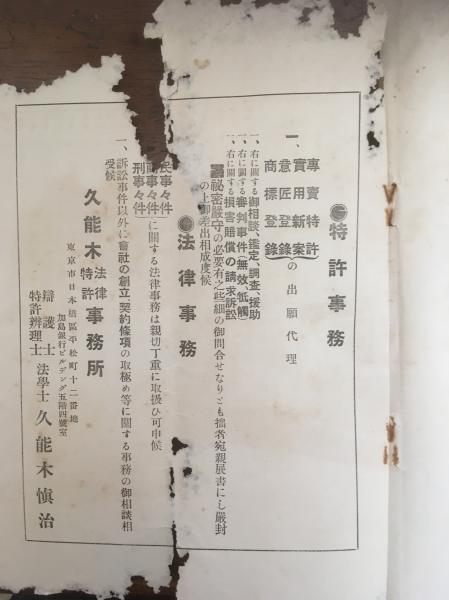 特許事務
一、
專賣特許
實用新案
意匠登錄
商標登錄
の出願代理
一、右に關する御相談、鑑定、調査、援助
一、右に關する審判事件(無效、牴觸)
一、右に關する損害賠償の請求訴訟
祕密嚴守の必要有之些細の御問合せなりとも拙者宛親展書にし嚴封
の上御差出相成度候
法律事務
民事々件
商事々件
刑事々件
に關する法律事務は親切丁重に取扱ひ可申候
一、訴訟事件以外に會社の創立、契約條項の取極め等に關する事務の御相談相
受候
久能木
法律
特許
事務所
東京市日本橋區平松町十二番地
加島銀行ビルデング五階四號室
辯護士
特許辨理士
法學士
久能木愼治